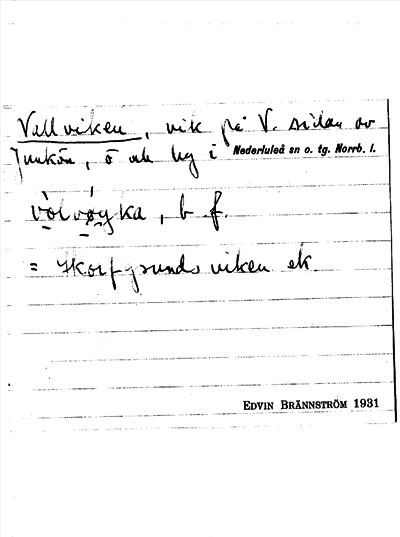 Vallviken, vik på V. sidan av
Junkön, ö och hg i Nederluleå sn o. tg. Norrb. l.
vòlvǿyka, b f.
= Skorpgrundsviken ek.
EDVIN BRÄNNSTRÖM 1931